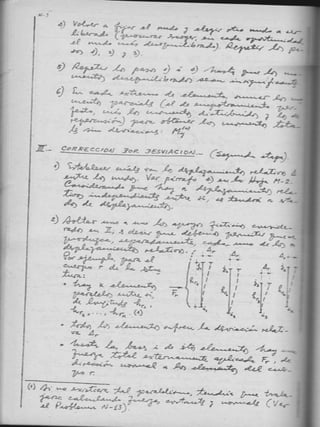 4) Volver a fijar el nudo y elegir otro nudo a ser
liberado (procurar escoger en cada oportunidad
el nudo más desequilibrado). Repetir los pa-
sos 1), 2) y 3).
5) Repetir los pasos 1) a 4) hasta que los mo-
mentos desequilibrados sean insignificantes
6) En cada extremo de elemento, sumar los mo-
mentos parciales (el de empotramiento per-
fecto, más los momentos distribuidos, y los de
repercusión) para obtener los momentos tota-
les sin desviaciones:
III.- CORRECCION POR DESVIACION.- (Segunda etapa)
1) Establecer cuáles son los desplazamientos relativos Δ
entre los nudos. Ver párrafo en la hoja M-2.
Considerando que hay n desplazamientos rela-
tivos independientes entre sí, se tendrá n esta-
dos de desplazamiento.
2) Soltar uno a uno los apoyos ficticios conside-
rados en II, es decir que debemos permitir que se
produzca, separadamente, cada uno de los n
desplazamientos relativos:
Por ejemplo para el
cuerpo r de la estruc
tura:
• hay elementos
paralelos entre sí,
de longitud
• todos los elementos sufren la desviación relati-
va Δr
• hasta las bases de elementos, hay una
fuerza total externamente aplicada Fr, de
dirección normal a los elementos del cuer-
po r.
(1) Si no existiera tal paralelismo, tendría que traba-
jarse calculando fuerzas cortantes y normales (Ver
el Problema N-13).